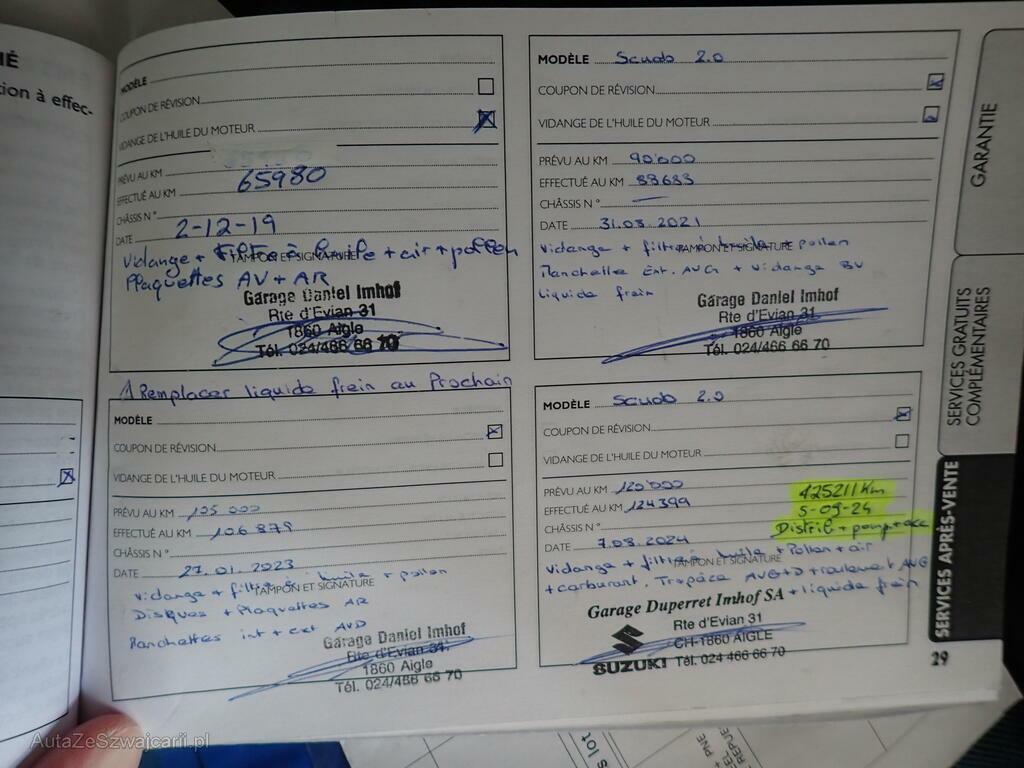 É
ion à effec-
MODÈLE
COUPON DE RÉVISION
VIDANGE DE L'HUILE DU MOTEUR
PRÉVU AU KM
EFFECTUÉ AU KM 65980
CHÂSSIS N°
DATE 2-12-19
Vidange + filtre à huile + air + pollen
TAMPON ET SIGNATURE
Plaquettes AV + AR
Garage Daniel Imhof
Rte d'Evian 31
1860 Aigle
Tél. 024/466 66 70
⚠ Remplacer liquide frein au Prochain
MODÈLE Scudo 2.0
COUPON DE RÉVISION
VIDANGE DE L'HUILE DU MOTEUR
PRÉVU AU KM 90'000
EFFECTUÉ AU KM 88683
CHÂSSIS N°
DATE 31.03.2021
Vidange + filtres huile pollen
TAMPON ET SIGNATURE
Manchette Ext. AVG + Vidange BV
liquide frein
Garage Daniel Imhof
Rte d'Evian 31
1860 Aigle
Tél. 024/466 66 70
MODÈLE
COUPON DE RÉVISION
VIDANGE DE L'HUILE DU MOTEUR
PRÉVU AU KM 105 000
EFFECTUÉ AU KM 106 879
CHÂSSIS N°
DATE 27.01.2023
Vidange + filtres huile + pollen
TAMPON ET SIGNATURE
Disques + Plaquettes AR
Manchettes int + ext AVD
Garage Daniel Imhof
Rte d'Evian 31
1860 Aigle
Tél. 024/466 66 70
MODÈLE Scudo 2.0
COUPON DE RÉVISION
VIDANGE DE L'HUILE DU MOTEUR
PRÉVU AU KM 120'000
EFFECTUÉ AU KM 124399
CHÂSSIS N°
DATE 7.08.2024
125211 Km
5-09-24
Distrib + pomp + acc
Vidange + filtres huile + Pollen + air
TAMPON ET SIGNATURE
+ carburant. Trapèze AVG+D + roulement AVG
+ liquide frein
Garage Duperret Imhof SA
Rte d'Evian 31
CH-1860 AIGLE
SUZUKI Tél. 024 466 66 70
GARANTIE
SERVICES GRATUITS
COMPLÉMENTAIRES
SERVICES APRÈS-VENTE
29
AutaZeSzwajcarii.pl
s lot
PNE
REPUE